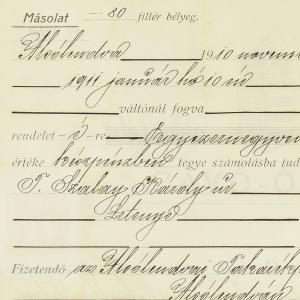 Másolat — 80 fillér bélyeg.
Alsólendva 1910 novem
1911 január hó 10 én
váltónál fogva
rendelet -é -re Egyezernegyven
értéke készpénzben tegye számolásba tud
T. Szalay Károly úr
Letenye
Fizetendő az Alsólendvai Takarék
Alsólendván